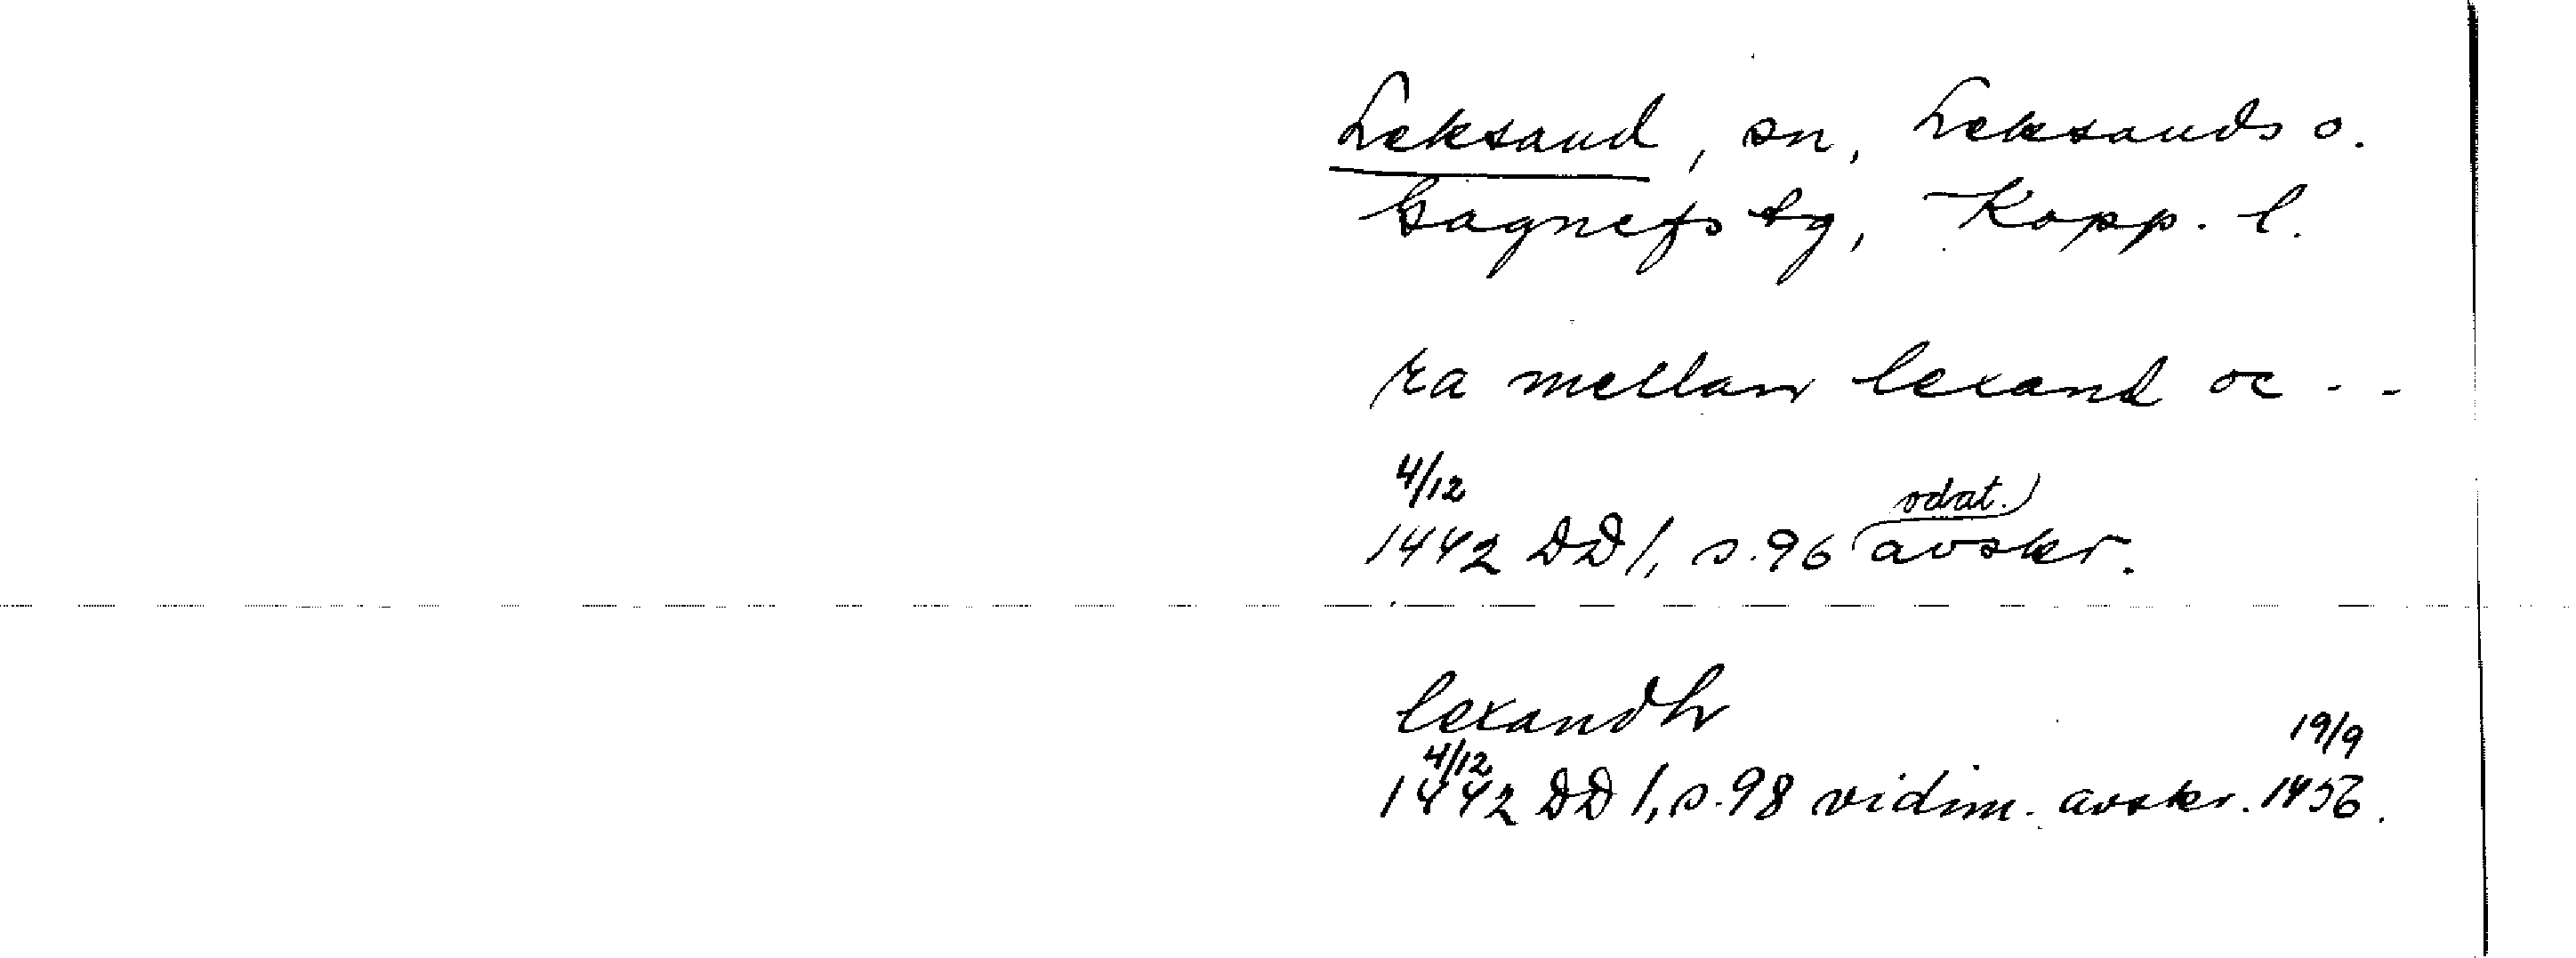 Leksand, sn, Leksands o.
Gagnefs tg, Kopp. l.
ra mellan lexand oc - -
4/12
odat.
1442 DD 1, s. 96 avskr.
lexandh
4/12 19/9
1442 DD 1, s. 98 vidim. avskr. 1456.